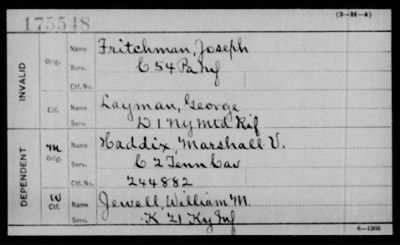 175548 (3-H-4)
INVALID
Orig. Name Fritchman, Joseph
Serv. C 54 Pa Inf
Ctf. No.
Ctf. Name Layman, George
Serv. D 1 Ny Mtd Rif
DEPENDENT
M Orig. Name Haddix, Marshall V.
Serv. C 2 Tenn Cav
Ctf. No. 244882
W Ctf. Name Jewell, William M.
Serv. K 21 Ky Inf
6-1303